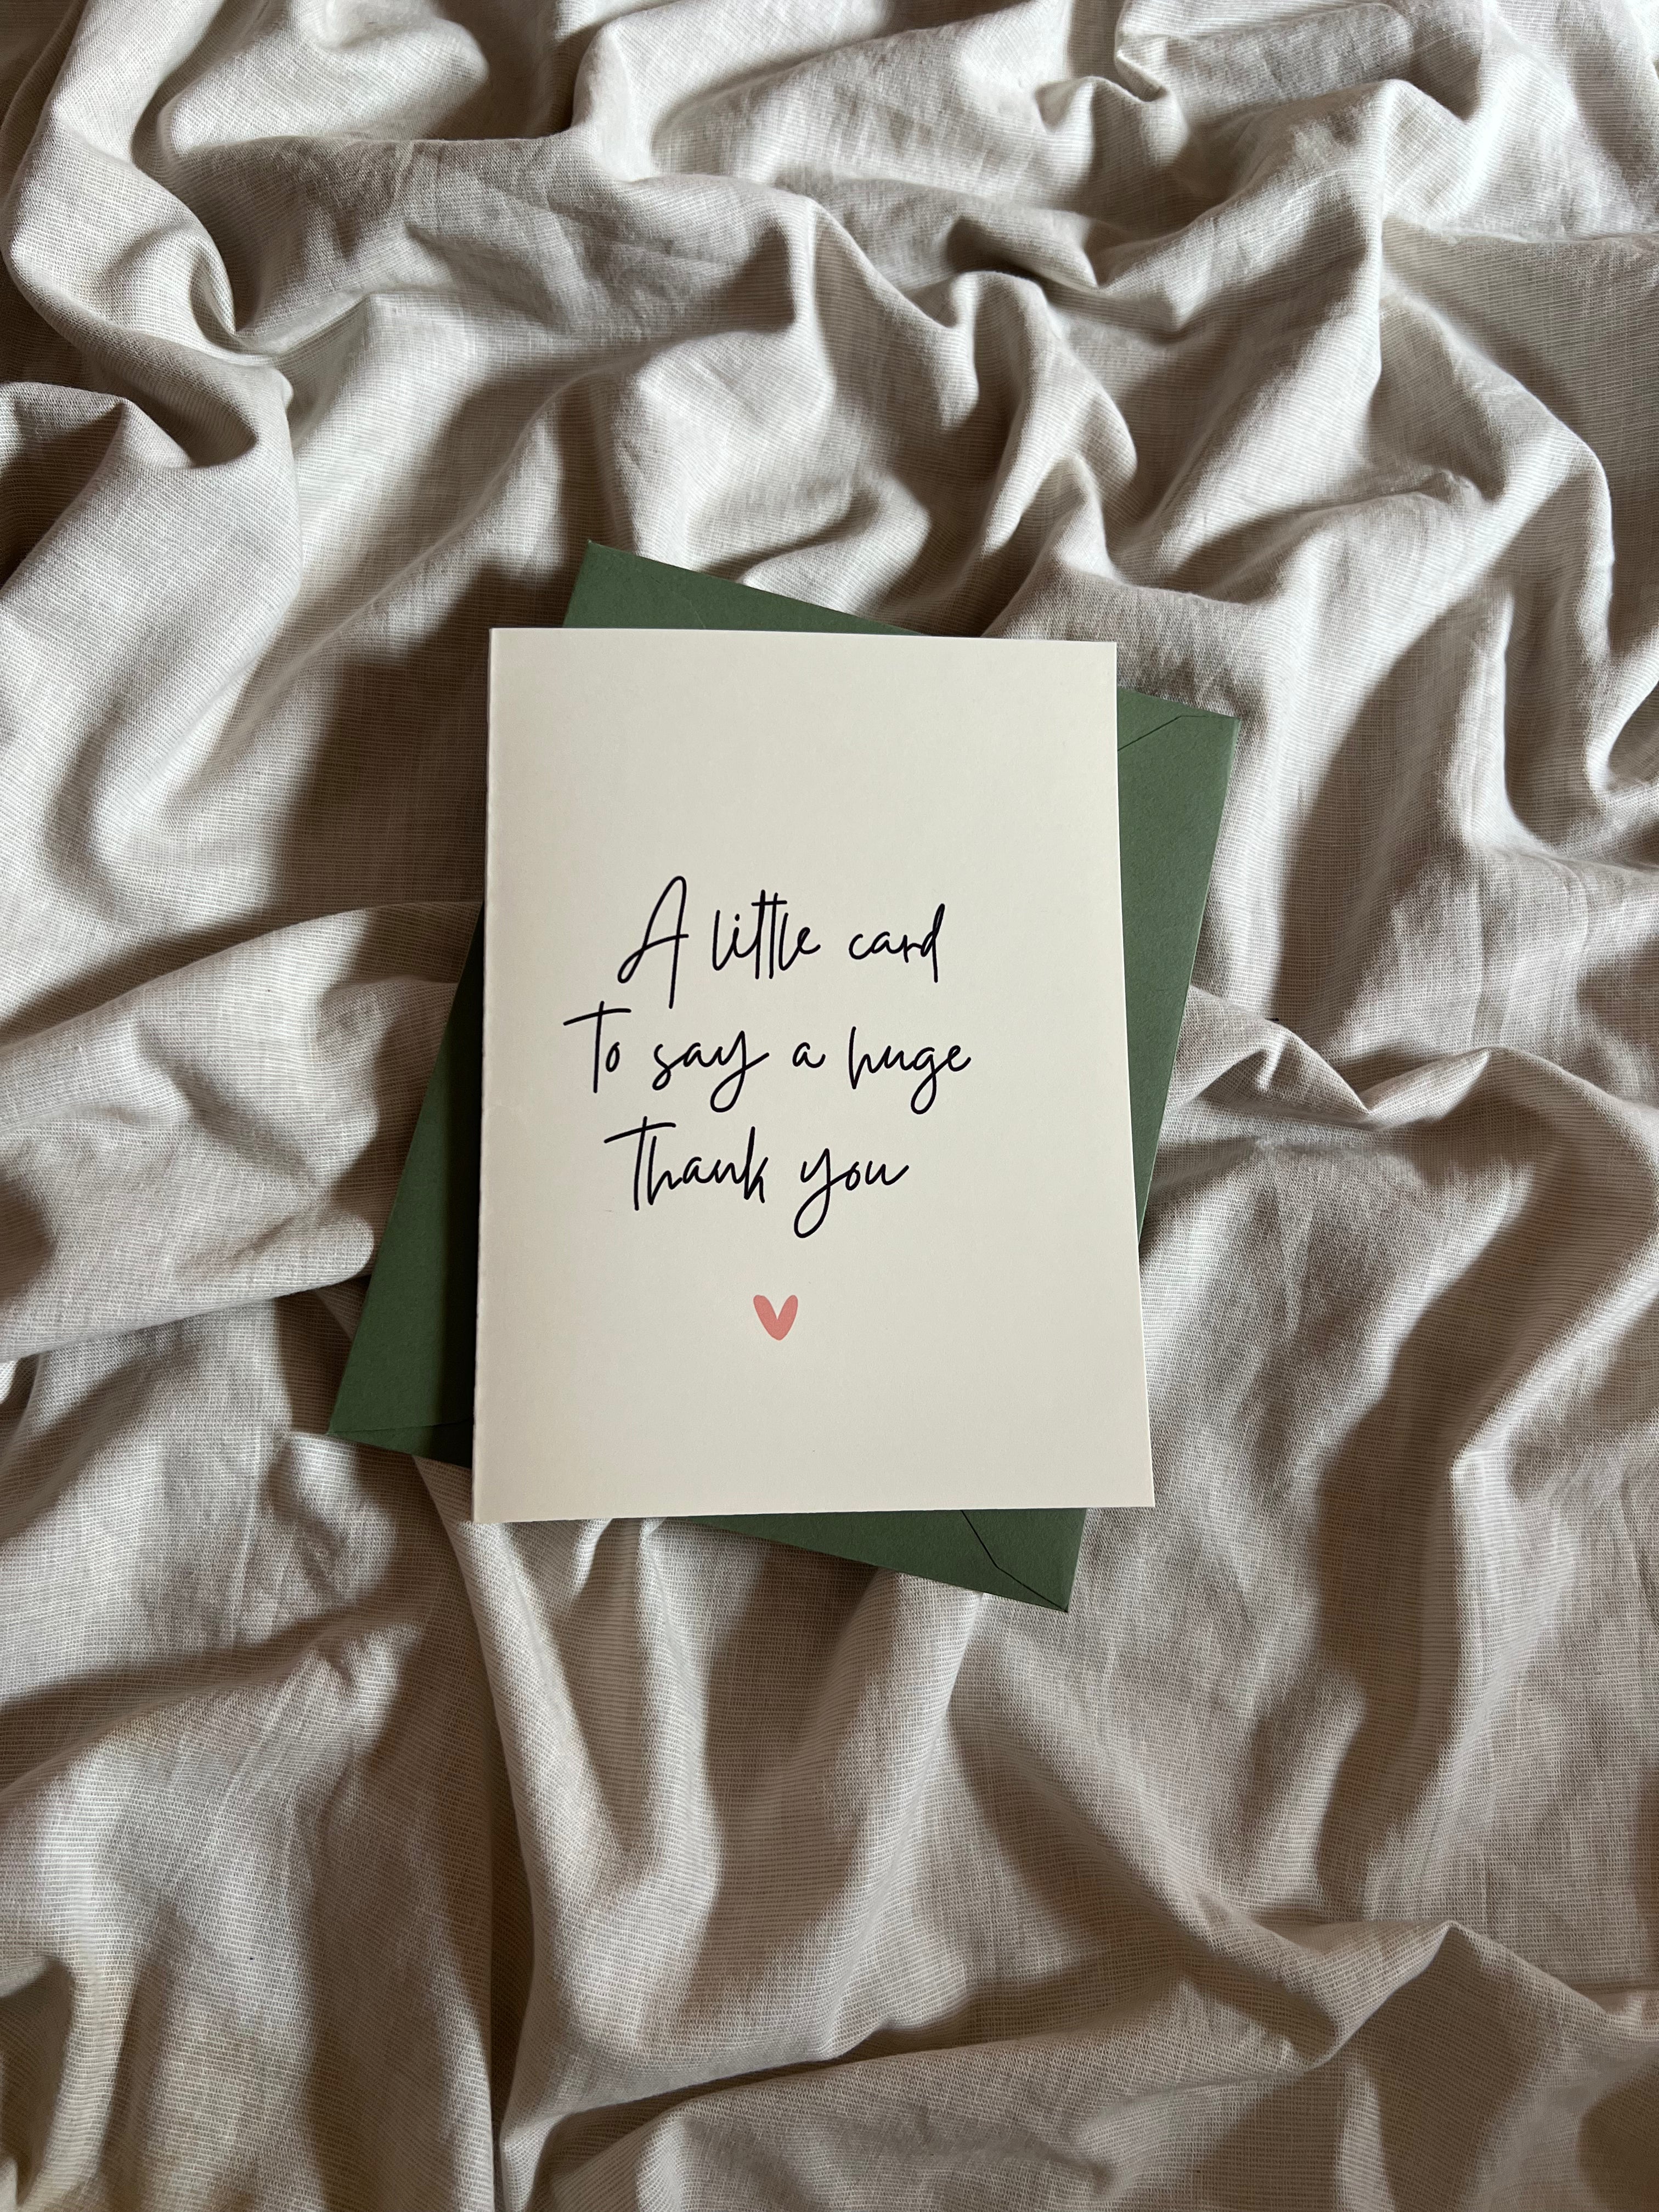 A little card
To say a huge
Thank you